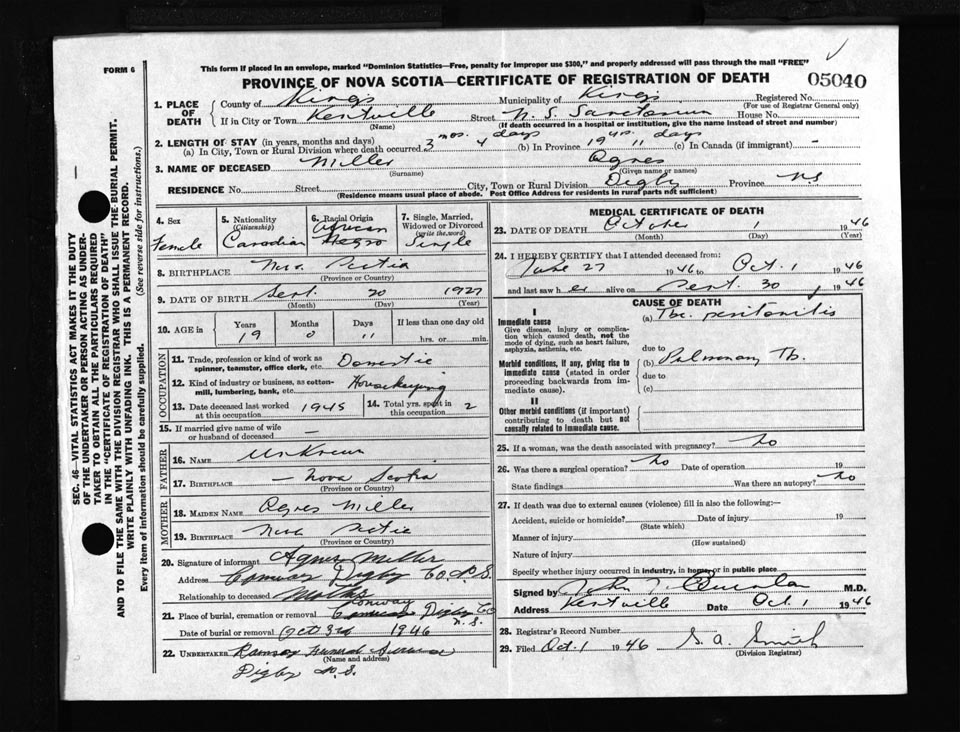 This form if placed in an envelope, marked "Dominion Statistics—Free, penalty for improper use $300," and properly addressed will pass through the mail "FREE"
FORM 6
PROVINCE OF NOVA SCOTIA—CERTIFICATE OF REGISTRATION OF DEATH 05040
1. PLACE OF DEATH County of Kings Municipality of Kings Registered No.
(For use of Registrar General only)
If in City or Town Kentville Street N. S. Sanatorium House No.
(Name) (If death occurred in a hospital or institution, give the name instead of street and number)
2. LENGTH OF STAY (in years, months and days) mos. days yrs. days
(a) In City, Town or Rural Division where death occurred 3 4 (b) In Province 19 11 (c) In Canada (if immigrant) -
3. NAME OF DECEASED Miller Agnes
(Surname) (Given name or names)
RESIDENCE No. Street City, Town or Rural Division Digby Province N.S
(Residence means usual place of abode. Post Office Address for residents in rural parts not sufficient)
SEC. 46—VITAL STATISTICS ACT MAKES IT THE DUTY
OF THE UNDERTAKER OR PERSON ACTING AS UNDERTAKER
TO OBTAIN ALL THE PARTICULARS REQUIRED
IN THE "CERTIFICATE OF REGISTRATION OF DEATH"
AND TO FILE THE SAME WITH THE DIVISION REGISTRAR WHO SHALL ISSUE THE BURIAL PERMIT.
WRITE PLAINLY WITH UNFADING INK. THIS IS A PERMANENT RECORD.
Every item of information should be carefully supplied. (See reverse side for instructions.)
4. Sex Female
5. Nationality (Citizenship) Canadian
6. Racial Origin African Negro
7. Single, Married, Widowed or Divorced (write the word) Single
8. BIRTHPLACE Nova Scotia
(Province or Country)
9. DATE OF BIRTH Sept. 20 1927
(Month) (Day) (Year)
10. AGE in Years Months Days If less than one day old
19 0 11 hrs. or min.
OCCUPATION
11. Trade, profession or kind of work as spinner, teamster, office clerk, etc. Domestic
12. Kind of industry or business, as cotton-mill, lumbering, bank, etc. Housekeeping
13. Date deceased last worked at this occupation 1945 14. Total yrs. spent in this occupation 2
15. If married give name of wife or husband of deceased —
FATHER
16. NAME Unknown
17. BIRTHPLACE — Nova Scotia
(Province or Country)
MOTHER
18. MAIDEN NAME Agnes Miller
19. BIRTHPLACE Nova Scotia
(Province or Country)
20. Signature of informant Agnes Miller
Address Conway Digby Co. N.S.
Relationship to deceased Mother
21. Place of burial, cremation or removal Conway Digby Co N.S.
Date of burial or removal Oct 3rd 1946
22. UNDERTAKER Funeral
(Name and address)
Digby N.S.
MEDICAL CERTIFICATE OF DEATH
23. DATE OF DEATH October 1 1946
(Month) (Day) (Year)
24. I HEREBY CERTIFY that I attended deceased from:
June 27 1946 to Oct. 1 1946
and last saw her alive on Sept. 30, 1946
CAUSE OF DEATH
I
Immediate cause (a) Tbc. peritonitis
Give disease, injury or complication which caused death, not the mode of dying, such as heart failure, asphyxia, asthenia, etc.
due to
Morbid conditions, if any, giving rise to immediate cause (stated in order proceeding backwards from immediate cause). (b) Pulmonary Tb.
due to
(c)
II
Other morbid conditions (if important) contributing to death but not causally related to immediate cause.
25. If a woman, was the death associated with pregnancy? No
26. Was there a surgical operation? No Date of operation 19
State findings Was there an autopsy? No
27. If death was due to external causes (violence) fill in also the following:—
Accident, suicide or homicide? Date of injury 19
(State which)
Manner of injury
(How sustained)
Nature of injury
Specify whether injury occurred in industry, in home, or in public place
Signed by M.D.
Address Kentville Date Oct. 1 1946
28. Registrar's Record Number
29. Filed Oct. 1 1946 S. A. Smith
(Division Registrar)